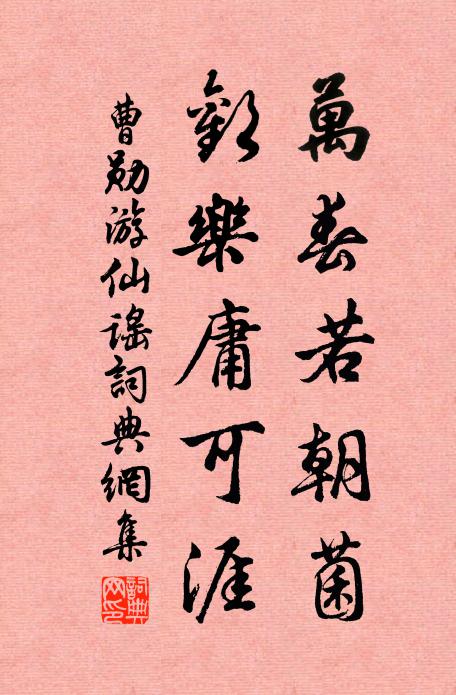 萬春若朝菌
歡樂庸可涯
曹勛游仙謠詞典網集
詞典网印